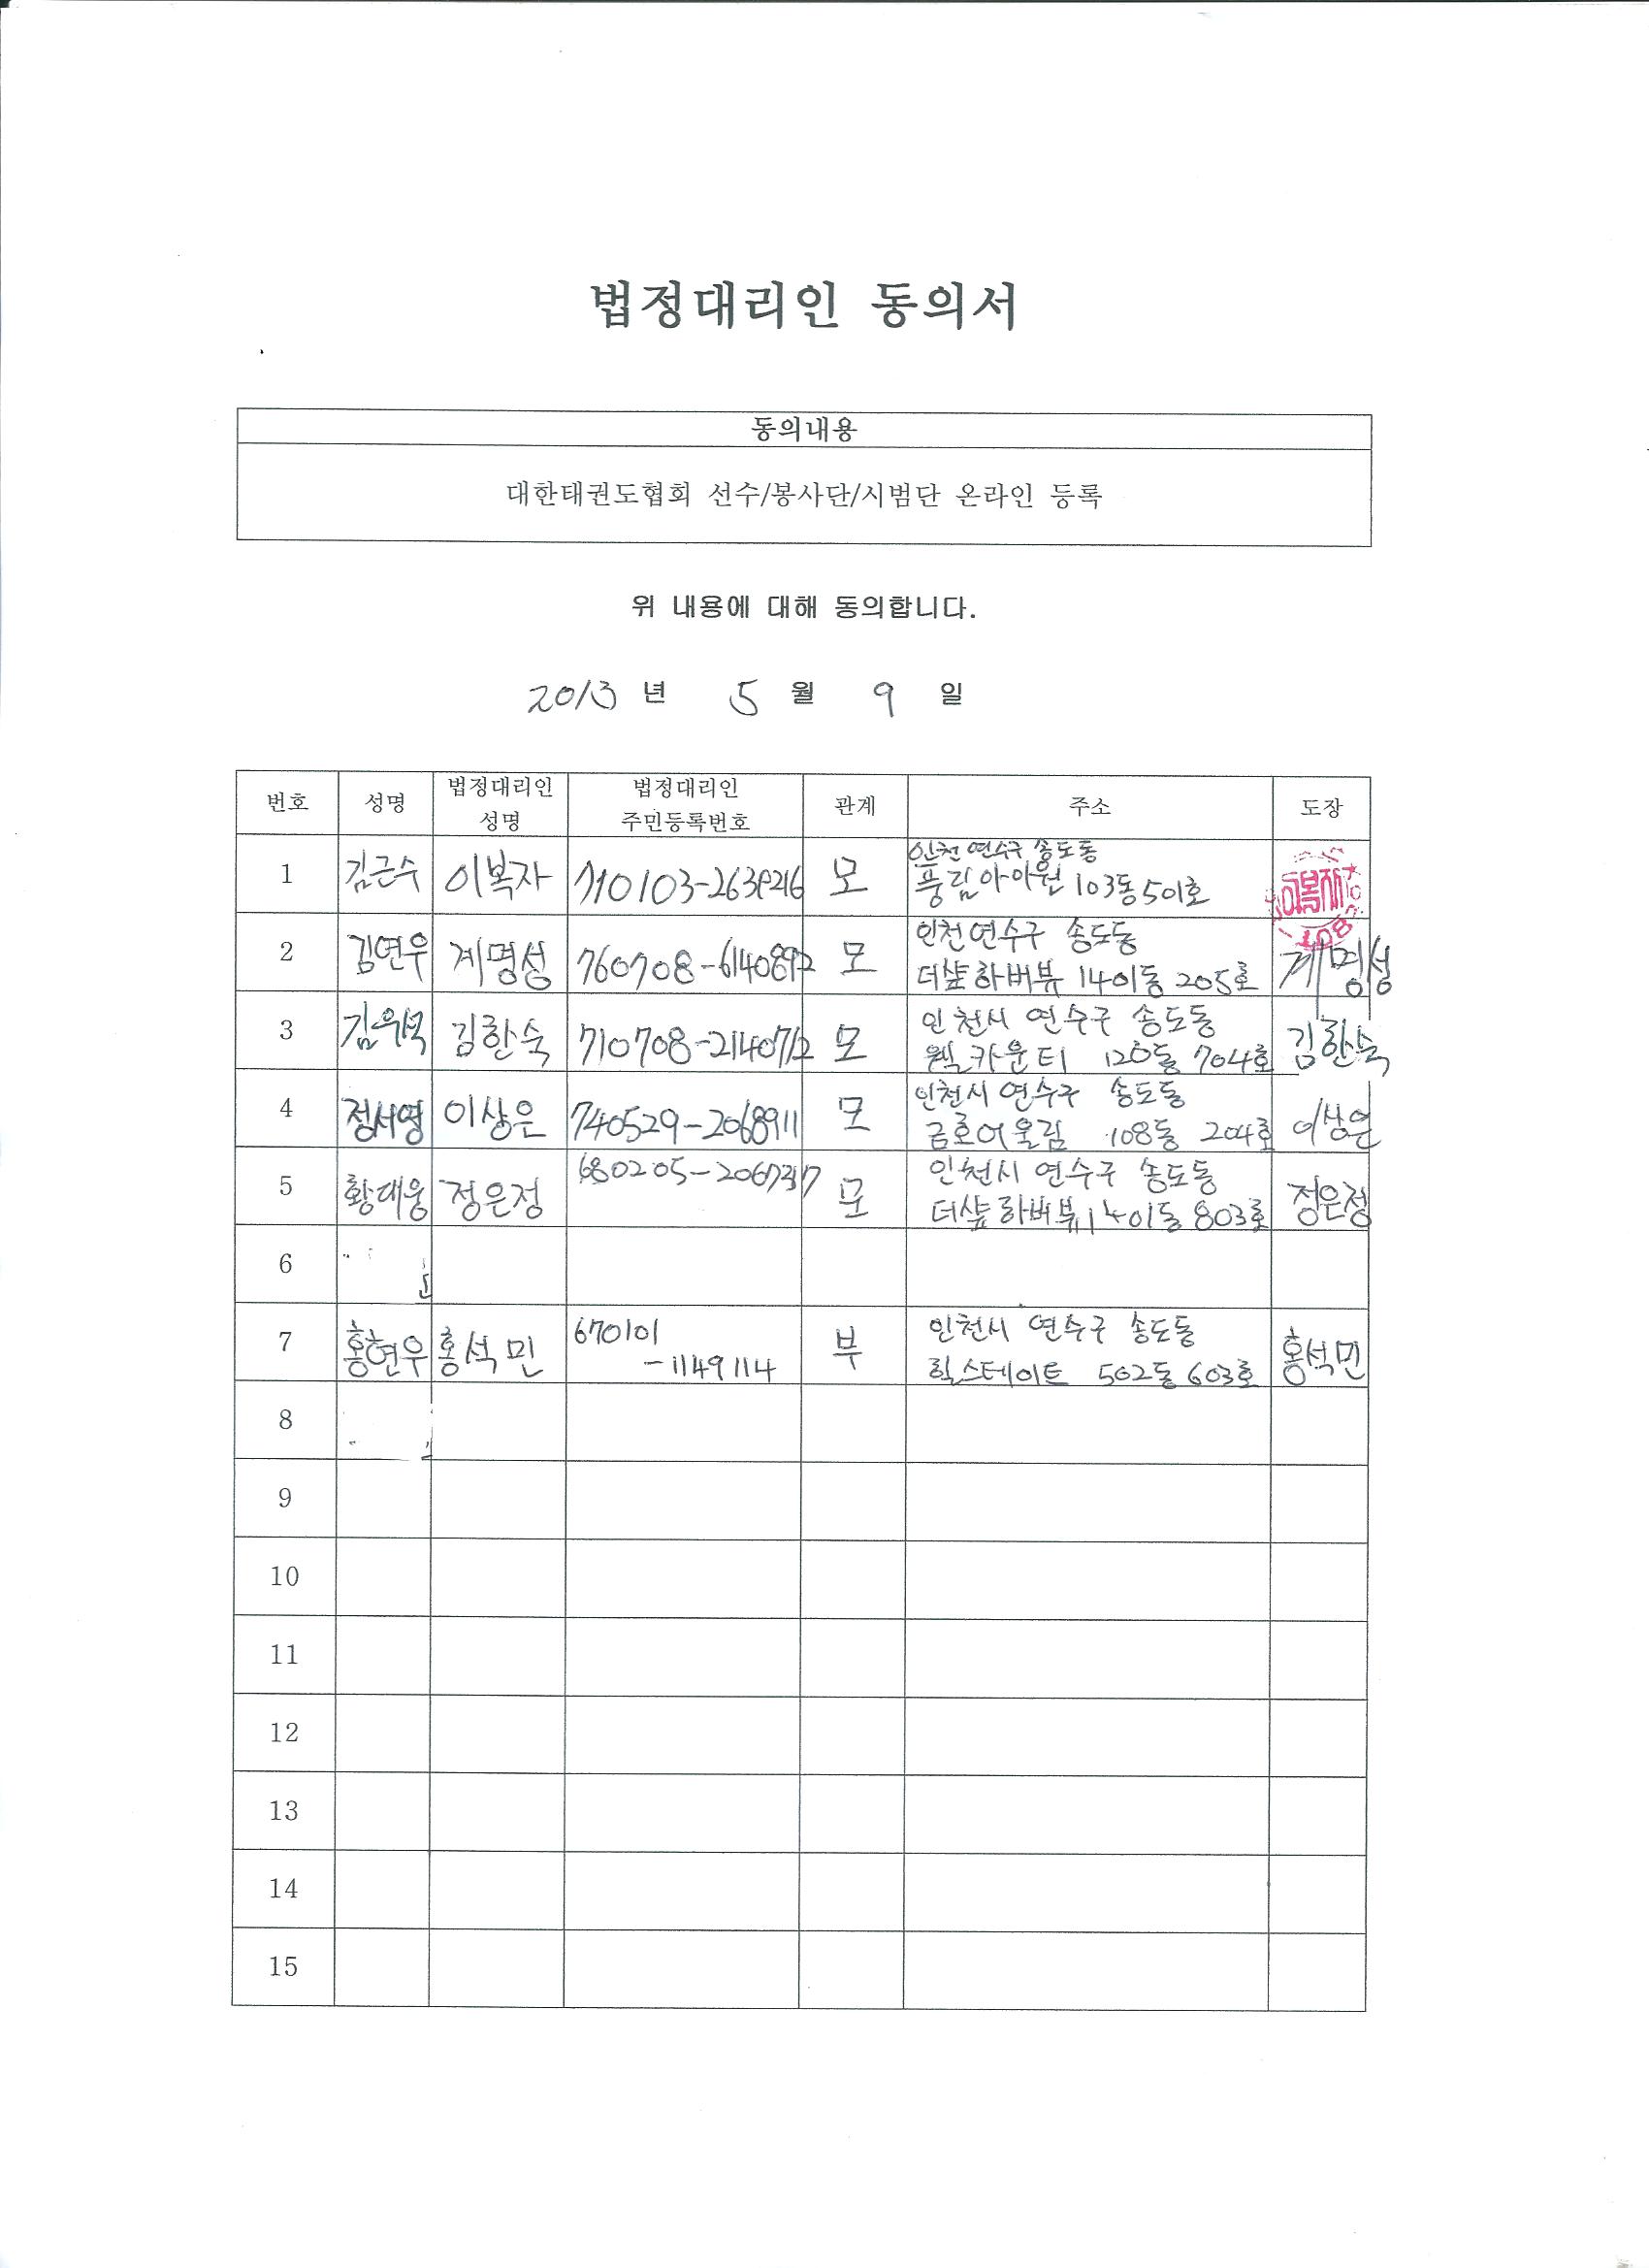 법정대리인 동의서
동의내용
대한태권도협회 선수/봉사단/시범단 온라인 등록
위 내용에 대해 동의합니다.
2013 년 5 월 9 일
번호 성명 법정대리인 성명 법정대리인 주민등록번호 관계 주소 도장
1 김근수 이복자 710103-2639216 모 인천 연수구 송도동
풍림아이원 103동 501호 이복자
2 김연우 계명성 모 인천 연수구 송도동
더샾 하버뷰 1401동 205호 계명성
3 김우석 김한숙 모 인천시 연수구 송도동
웰카운티 704호 김한숙
4 정서영 이상은 740529-2068911 모 인천시 연수구 송도동
금호어울림 108동 204호 이상은
5 황대웅 정은정 모 인천시 연수구 송도동
더샾 하버뷰 1401동 803호 정은정
6
7 홍현우 홍석민 670101
-1149114 부 인천시 연수구 송도동
힐스테이트 502동 603호 홍석민
8
9
10
11
12
13
14
15